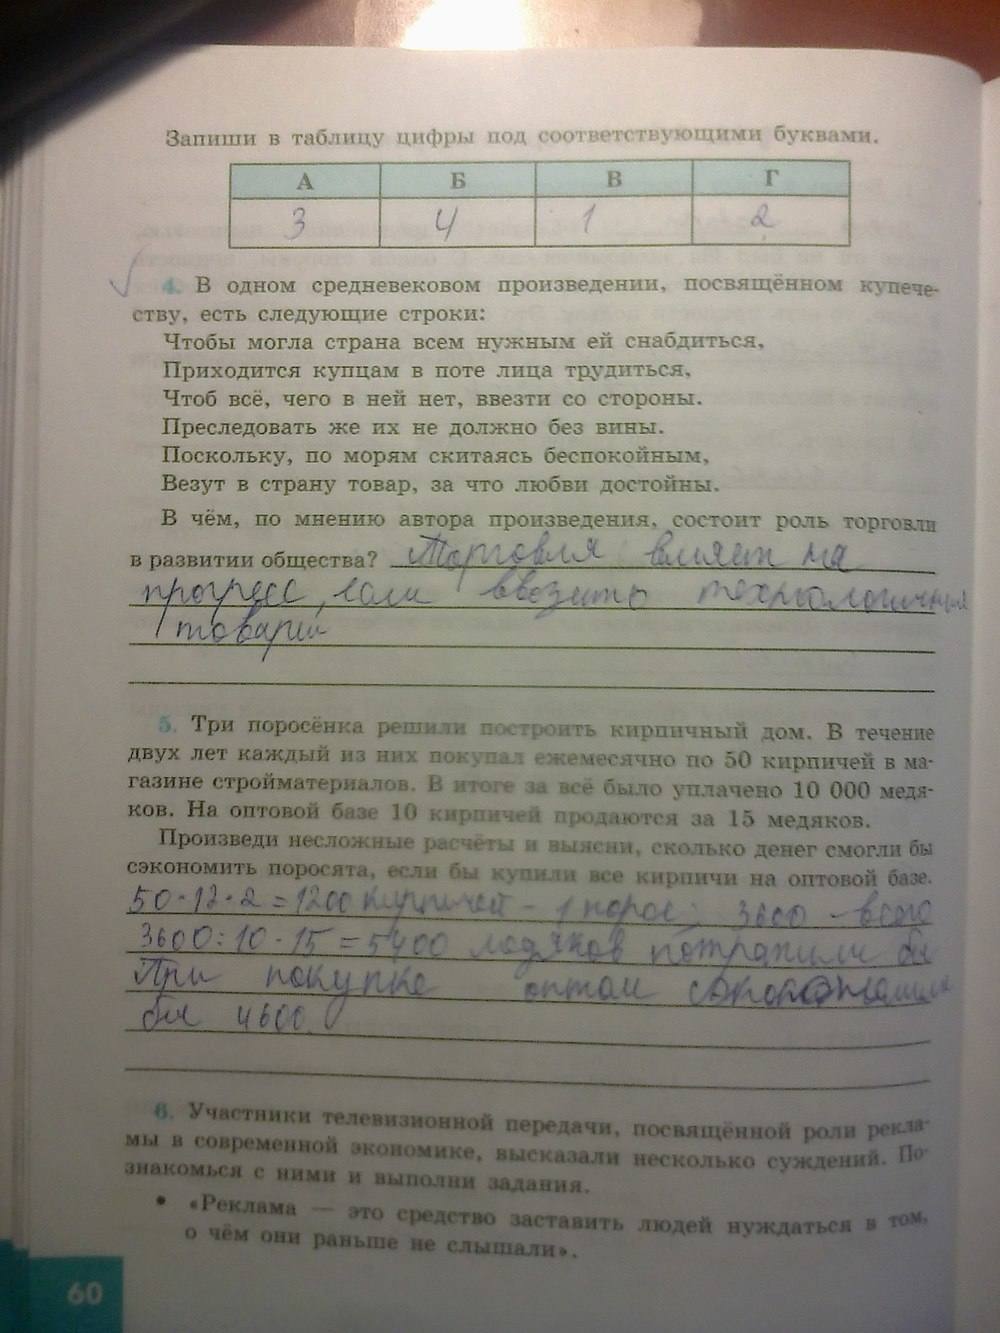 Запиши в таблицу цифры под соответствующими буквами.
А Б В Г
3 4 1 2
4. В одном средневековом произведении, посвящённом купече-
ству, есть следующие строки:
Чтобы могла страна всем нужным ей снабдиться,
Приходится купцам в поте лица трудиться,
Чтоб всё, чего в ней нет, ввезти со стороны.
Преследовать же их не должно без вины.
Поскольку, по морям скитаясь беспокойным,
Везут в страну товар, за что любви достойны.
В чём, по мнению автора произведения, состоит роль торговли
в развитии общества? Торговля влияет на
прогресс, если ввозить технологичные
товары
5. Три поросёнка решили построить кирпичный дом. В течение
двух лет каждый из них покупал ежемесячно по 50 кирпичей в ма-
газине стройматериалов. В итоге за всё было уплачено 10 000 медя-
ков. На оптовой базе 10 кирпичей продаются за 15 медяков.
Произведи несложные расчёты и выясни, сколько денег смогли бы
сэкономить поросята, если бы купили все кирпичи на оптовой базе.
50·12·2=1200 кирпичей - 1 порос; 3600 - всего
3600:10·15=5400 медяков потратили бы
При покупке оптом сэкономили
бы 4600.
6. Участники телевизионной передачи, посвящённой роли рекла-
мы в современной экономике, высказали несколько суждений. По-
знакомься с ними и выполни задания.
• «Реклама — это средство заставить людей нуждаться в том,
о чём они раньше не слышали».
60